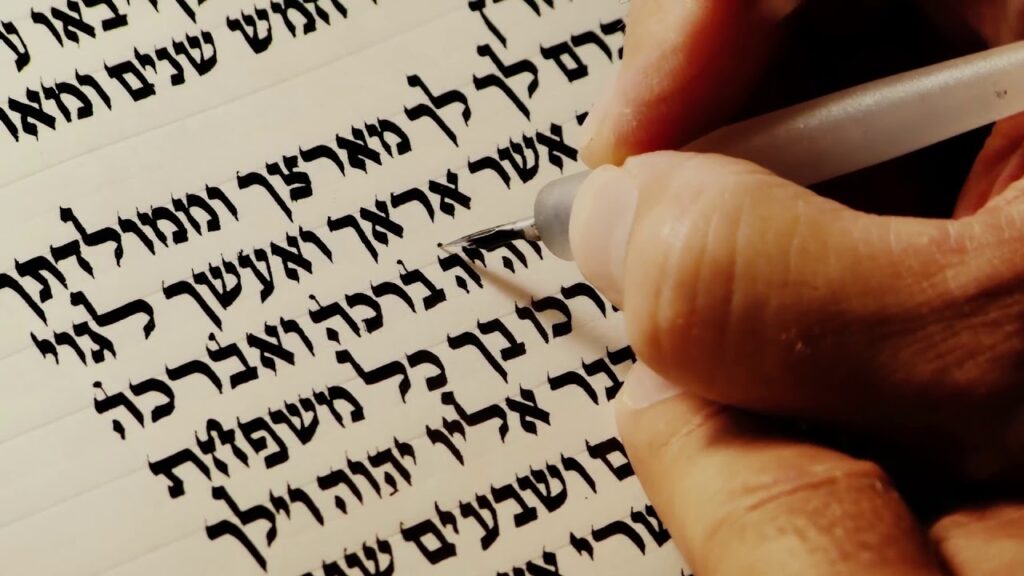 יבאו
חמש שנים
לך לך מארצך וממולדתך
אשר אראך ואעשך לגוי
והיה ברכה ואברכה
בך כל משפחת
אליו יהוה וילך
ושבעים
שרי